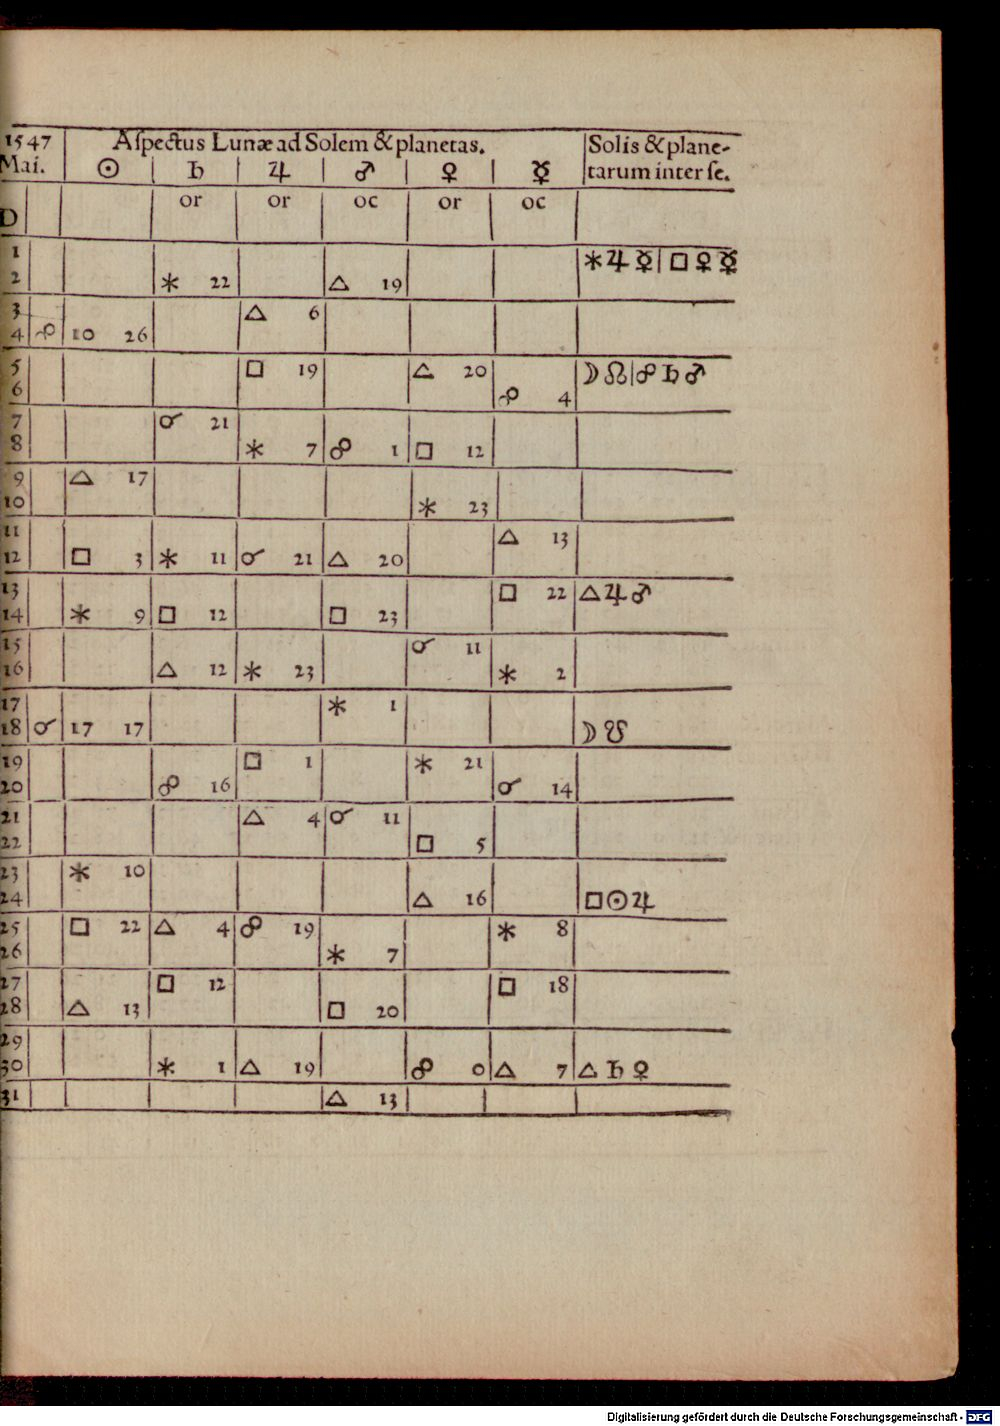 1547 Aſpectus Lunæ ad Solem & planetas. Solis & plane-
Mai. ☉ ♄ ♃ ♂ ♀ ☿ tarum inter ſe.
D or or oc or oc
1 ⚹ ♃ ☿ | □ ♀ ☿
2 ⚹ 22 △ 19
3 △ 6
4 ☍ 10 26
5 □ 19 △ 20 ☽ ☊ | ☍ ♄ ♂
6 ☍ 4
7 ☌ 21
8 ⚹ 7 ☍ 1 □ 12
9 △ 17
10 ⚹ 23
11 △ 13
12 □ 3 ⚹ 11 ☌ 21 △ 20
13 □ 22 △ ♃ ♂
14 ⚹ 9 □ 12 □ 23
15 ☌ 11
16 △ 12 ⚹ 23 ⚹ 2
17 ⚹ 1
18 ☌ 17 17 ☽ ☋
19 □ 1 ⚹ 21
20 ☍ 16 ☌ 14
21 △ 4 ☌ 11
22 □ 5
23 ⚹ 10
24 △ 16 □ ☉ ♃
25 □ 22 △ 4 ☍ 19 ⚹ 8
26 ⚹ 7
27 □ 12 □ 18
28 △ 13 □ 20
29
30 ⚹ 1 △ 19 ☍ 0 △ 7 △ ♄ ♀
31 △ 13
Digitalisierung gefördert durch die Deutsche Forschungsgemeinschaft - DFG